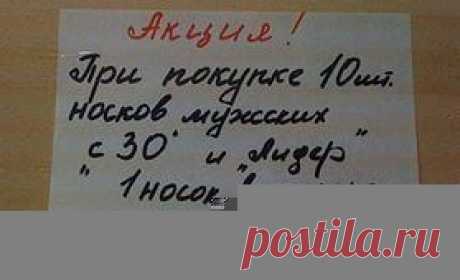 Акция!
При покупке 10шт.
носков мужских
с 30 и „Лидер"
" 1 носок
postila.ru